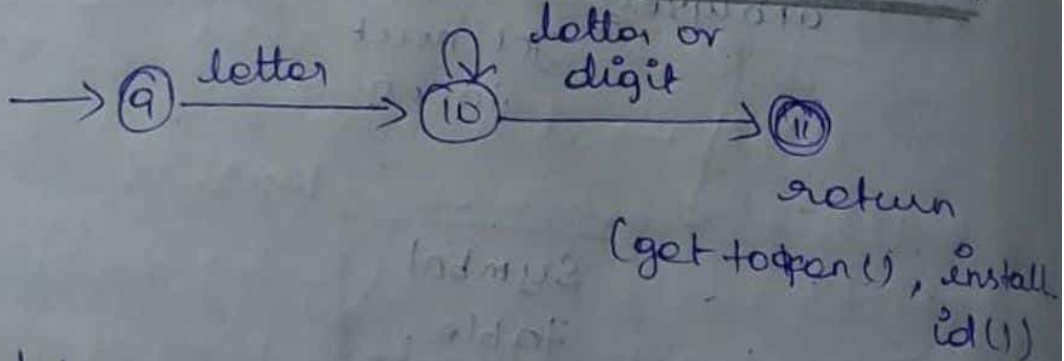 letter or
letter
digit
9
10
11
return
(get token(), install
id())